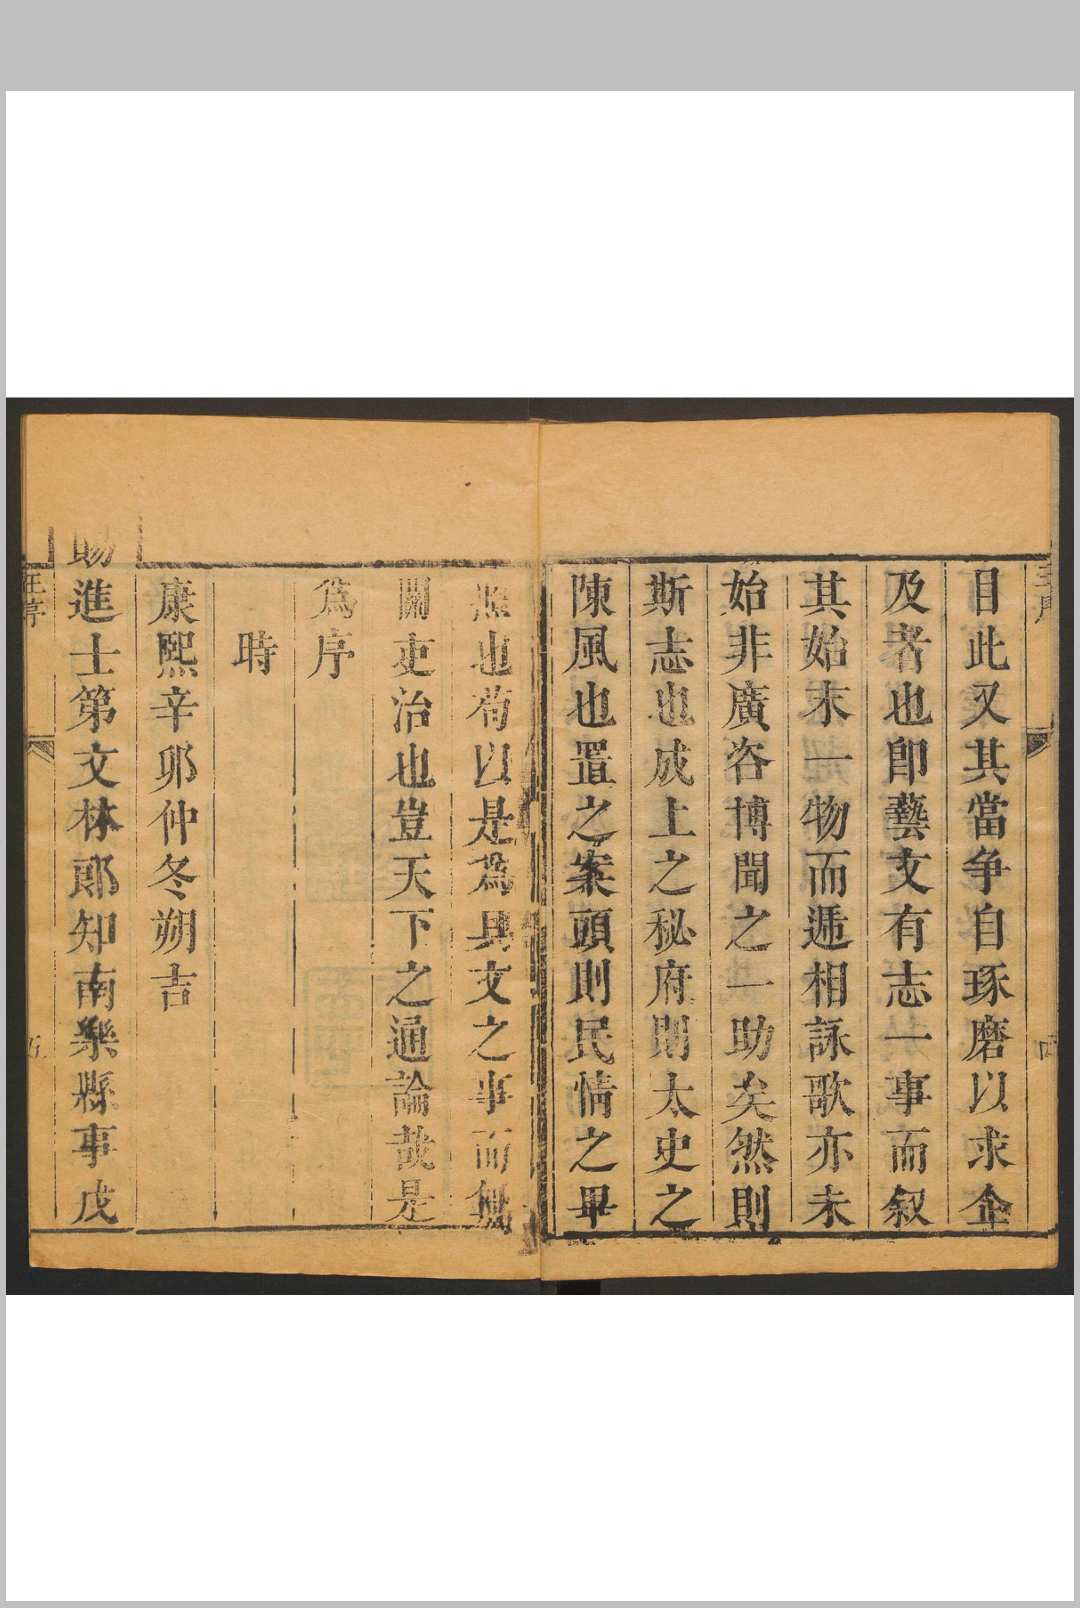 目此又其當争自琢磨以求企
及者也卽藝文有志一事而叙
其始末一物而遞相詠歌亦未
始非廣咨博聞之一助矣然則
斯志也成上之秘府則太史之
陳風也置之案頭則民情之畢
照也苟以是為具文之事而無
關吏治也豈天下之通論哉是
爲序
時
康熙辛卯仲冬朔吉
賜進士第文林郎知南樂縣事戊